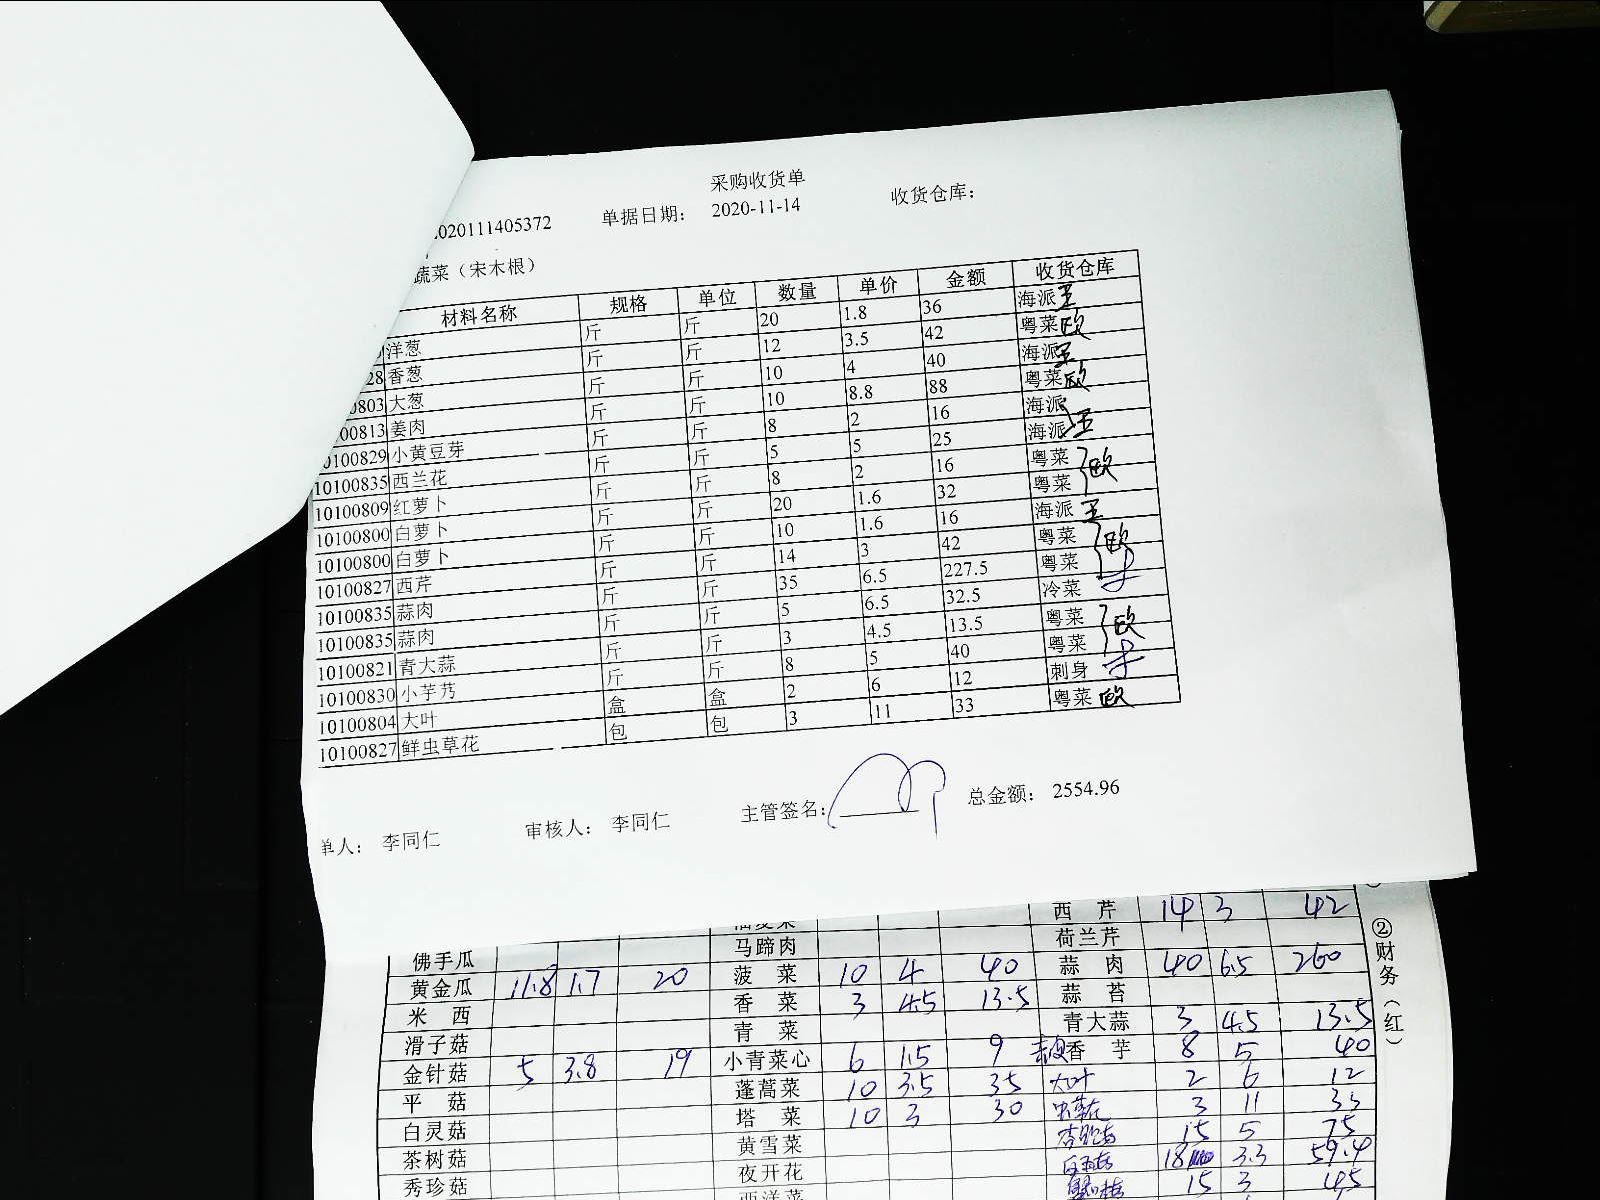 采购收货单
020111405372 单据日期： 2020-11-14 收货仓库：
蔬菜（宋木根）
材料名称 规格 单位 数量 单价 金额 收货仓库
洋葱 斤 斤 20 1.8 36 海派 王
28 香葱 斤 斤 12 3.5 42 粤菜 欧
0803 大葱 斤 斤 10 4 40 海派 王
00813 姜肉 斤 斤 10 8.8 88 粤菜 欧
0100829 小黄豆芽 斤 斤 8 2 16 海派
10100835 西兰花 斤 斤 5 5 25 海派 王
10100809 红萝卜 斤 斤 8 2 16 粤菜 欧
10100800 白萝卜 斤 斤 20 1.6 32 粤菜
10100800 白萝卜 斤 斤 10 1.6 16 海派 王
10100827 西芹 斤 斤 14 3 42 粤菜 欧
10100835 蒜肉 斤 斤 35 6.5 227.5 粤菜
10100835 蒜肉 斤 斤 5 6.5 32.5 冷菜
10100821 青大蒜 斤 斤 3 4.5 13.5 粤菜 欧
10100830 小芋艿 斤 斤 8 5 40 粤菜
10100804 大叶 盒 盒 2 6 12 刺身
10100827 鲜虫草花 包 包 3 11 33 粤菜 欧
单人： 李同仁 审核人： 李同仁 主管签名： 总金额： 2554.96
西芹 14 3 42
马蹄肉 荷兰芹
佛手瓜 菠菜 10 4 40 蒜肉 40 6.5 260
黄金瓜 11.8 1.7 20 香菜 3 4.5 13.5 蒜苔
米西 青菜 青大蒜 3 4.5 13.5
滑子菇 小青菜心 6 1.5 9 香芋 8 5 40
金针菇 5 3.8 19 蓬蒿菜 10 3.5 35 大叶 2 6 12
平菇 塔菜 10 3 30 虫草花 3 11 33
白灵菇 黄雪菜 15 5 75
茶树菇 夜开花 18 3.3 59.4
秀珍菇 西洋菜 15 3 45
②财务（红）